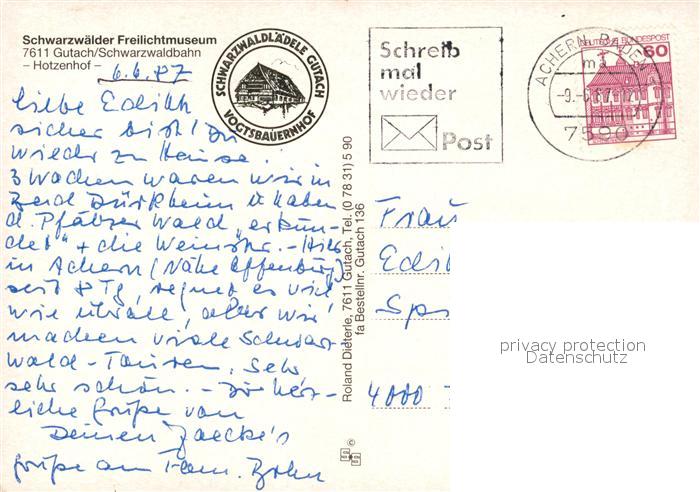 Schwarzwälder Freilichtmuseum
7611 Gutach/Schwarzwaldbahn
– Hotzenhof –
6.6.87
SCHWARZWALDLÄDELE GUTACH
VOGTSBAUERNHOF
Schreib
mal
wieder
Post
ACHERN
-9.-6.87
7590
DEUTSCHE BUNDESPOST
60
liebe Edith
sicher bist Du
wieder zu Hause.
3 Wochen waren wir in
Bad Dürkheim u. haben
d. Pfälzer Wald „erkun-
det" + die Weinstr. – Hier
in Achern (Nähe Offenburg)
seit 8 Tg, regnet es viel
wie überall, aber wir
machen viele Schwarz-
wald-Touren. Sehr
sehr schön. – Dir herz-
liche Grüße von
Deinen
Grüße an Fam.
Roland Dieterle, 7611 Gutach, Tel. (0 78 31) 5 90
fa Bestellnr. Gutach 136
Frau
Edi
Sp
4000
privacy protection
Datenschutz
©